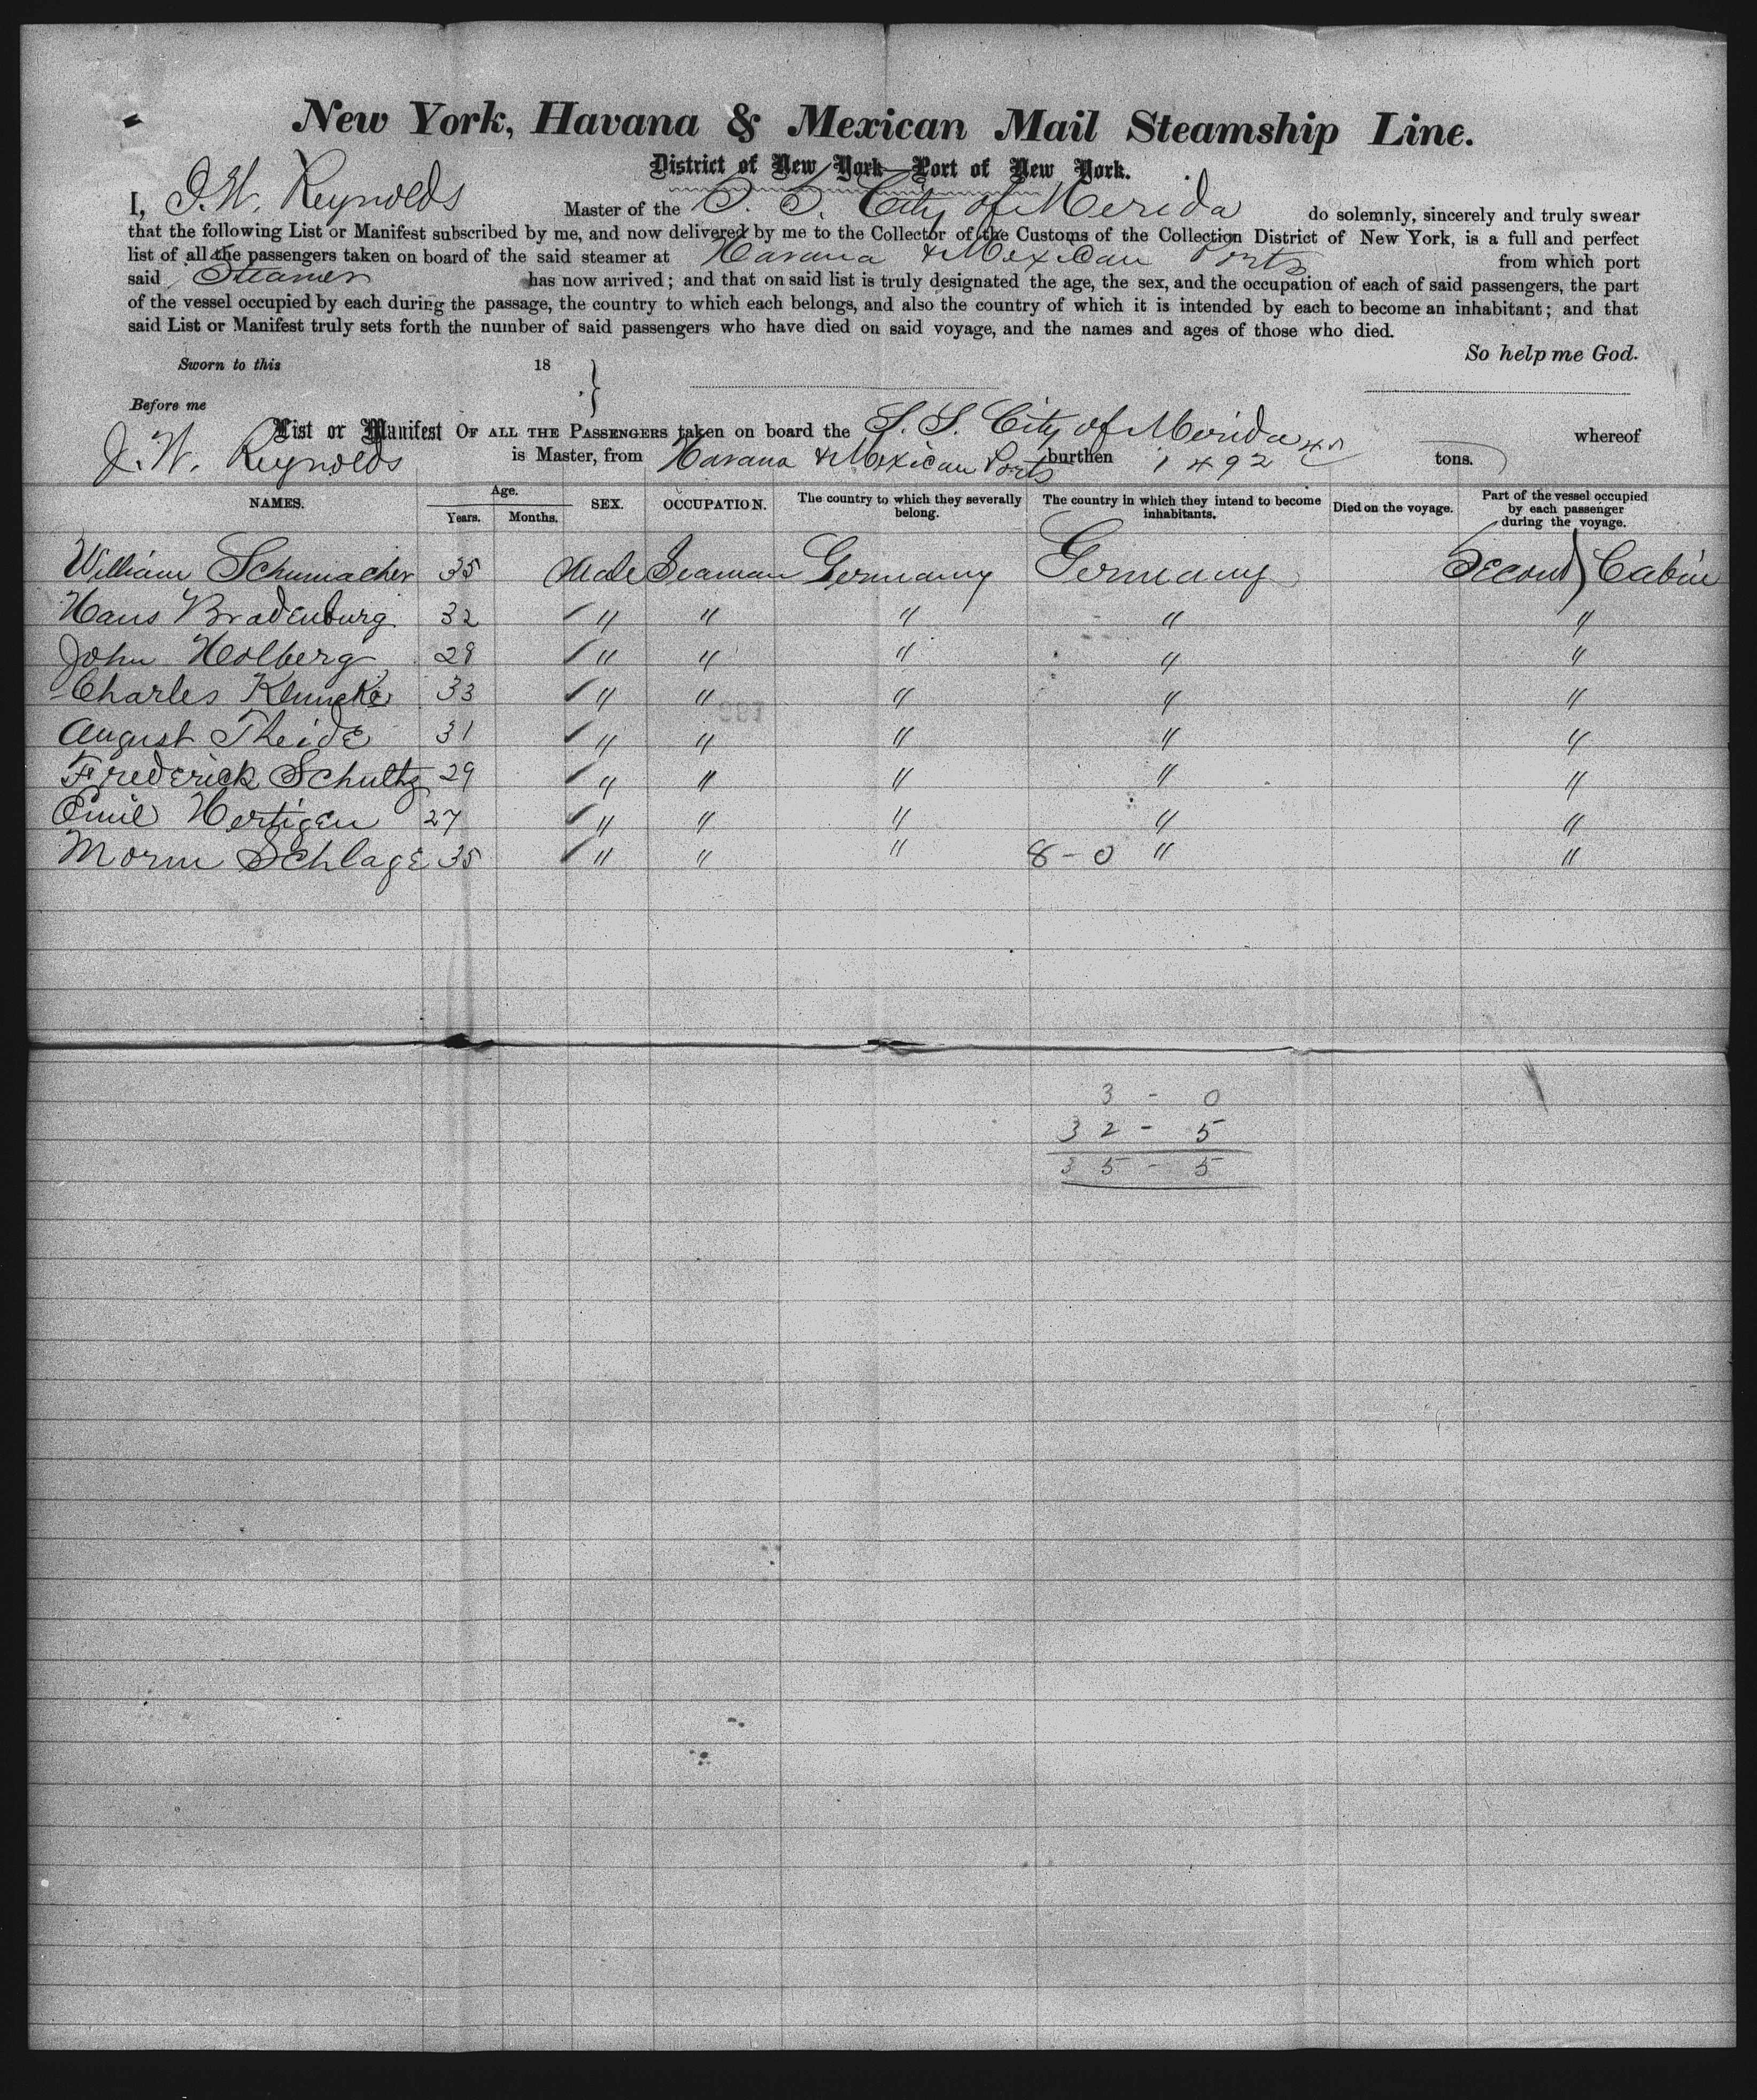 New York, Havana & Mexican Mail Steamship Line.
District of New York—Port of New York.
I, J. W. Reynolds Master of the S. S. City of Merida do solemnly, sincerely and truly swear
that the following List or Manifest subscribed by me, and now delivered by me to the Collector of the Customs of the Collection District of New York, is a full and perfect
list of all the passengers taken on board of the said steamer at Havana & Mexican Ports from which port
said Steamer has now arrived; and that on said list is truly designated the age, the sex, and the occupation of each of said passengers, the part
of the vessel occupied by each during the passage, the country to which each belongs, and also the country of which it is intended by each to become an inhabitant; and that
said List or Manifest truly sets forth the number of said passengers who have died on said voyage, and the names and ages of those who died.
So help me God.
Sworn to this 18
Before me
List or Manifest OF ALL THE PASSENGERS taken on board the S. S. City of Merida whereof
J. W. Reynolds is Master, from Havana & Mexican Ports burthen 1492 tons.
NAMES. Age. Years. Months. SEX. OCCUPATION. The country to which they severally belong. The country in which they intend to become inhabitants. Died on the voyage. Part of the vessel occupied by each passenger during the voyage.
William Schumacher 35 Male Seaman Germany Germany Second Cabin
Hans Bradenburg 32 " " " " "
John Holberg 28 " " " " "
Charles 33 " " " " "
August Theide 31 " " " " "
Frederick Schultz 29 " " " " "
Emil Hertigen 27 " " " " "
Morm Schlage 35 " " " 8 - 0 " "
3 - 0
32 - 5
35 - 5